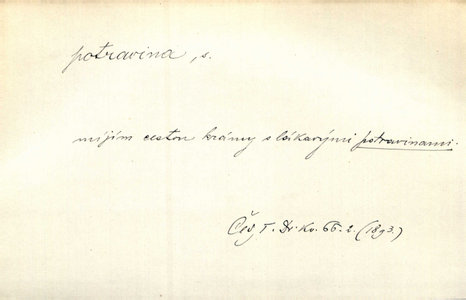 potravina, s.
míjím cestou krámy s lákavými potravinami.
Čej. T. Dr. Kv. 66. 2. (1893.)